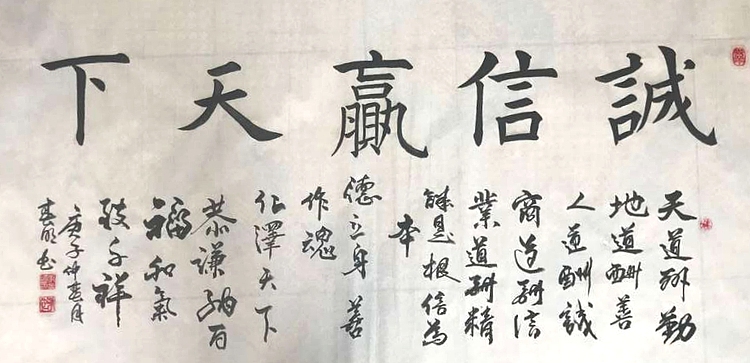 誠信贏天下
天道酬勤
地道酬善
人道酬誠
商道酬信
業道酬精
誠是根信為
本
德立身善
作魂
仁澤天下
恭謙納百
福和氣
致千祥
庚子仲春月